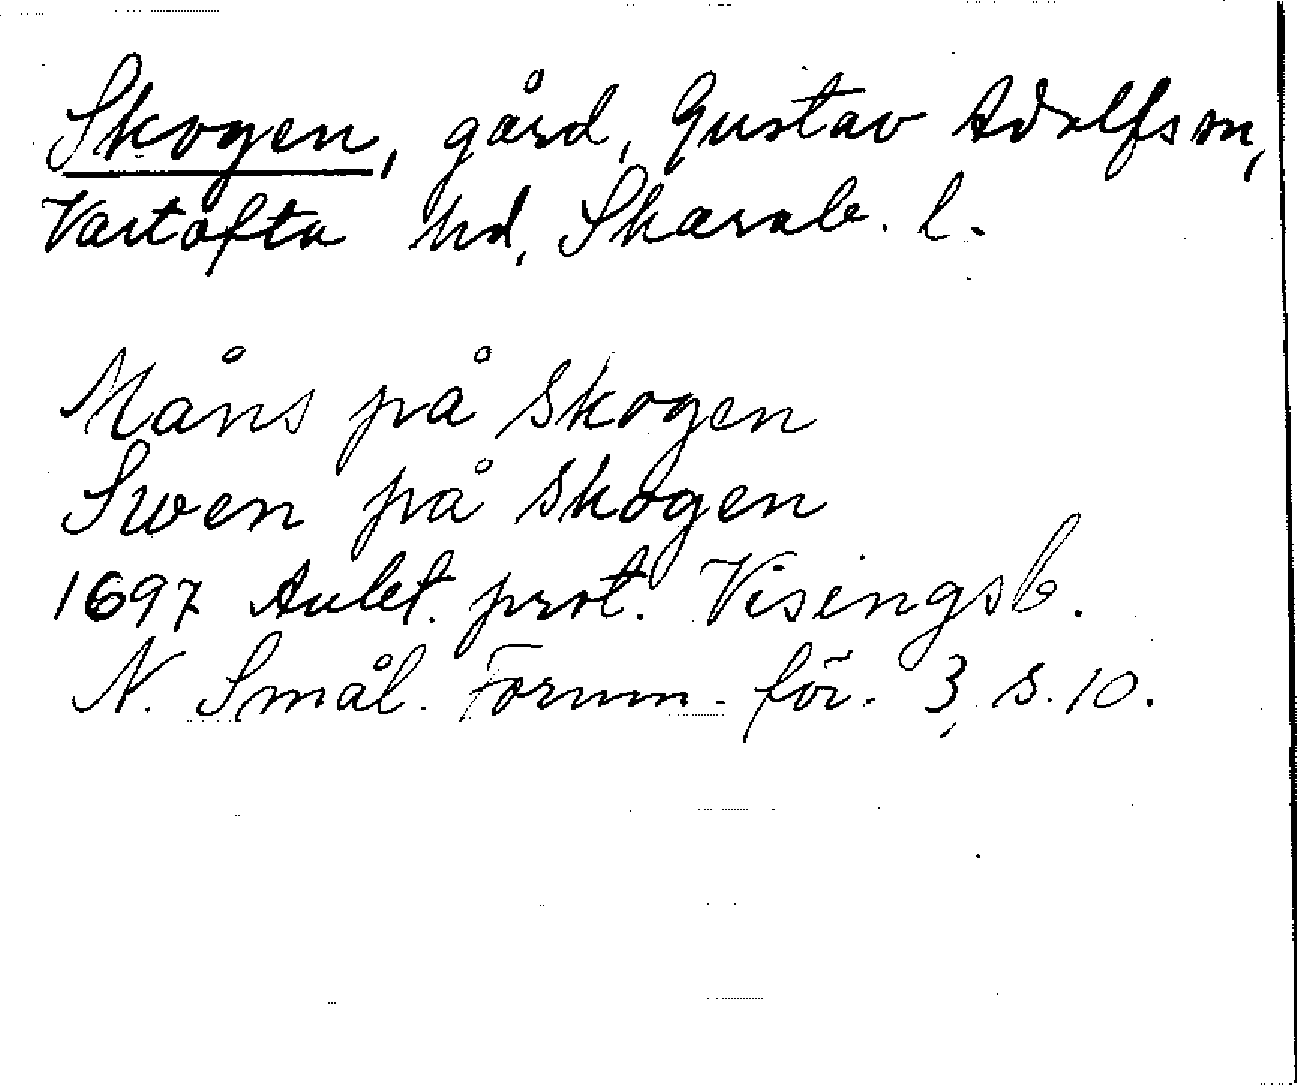 Skogen, gård, Gustav Adolfs sn,
Vartofta hd, Skarab. l.
Måns på Skogen
Swen på Skogen
1697 Aukt. prot. Visingsb.
N. Smål. Fornm.för. 3, s. 10.